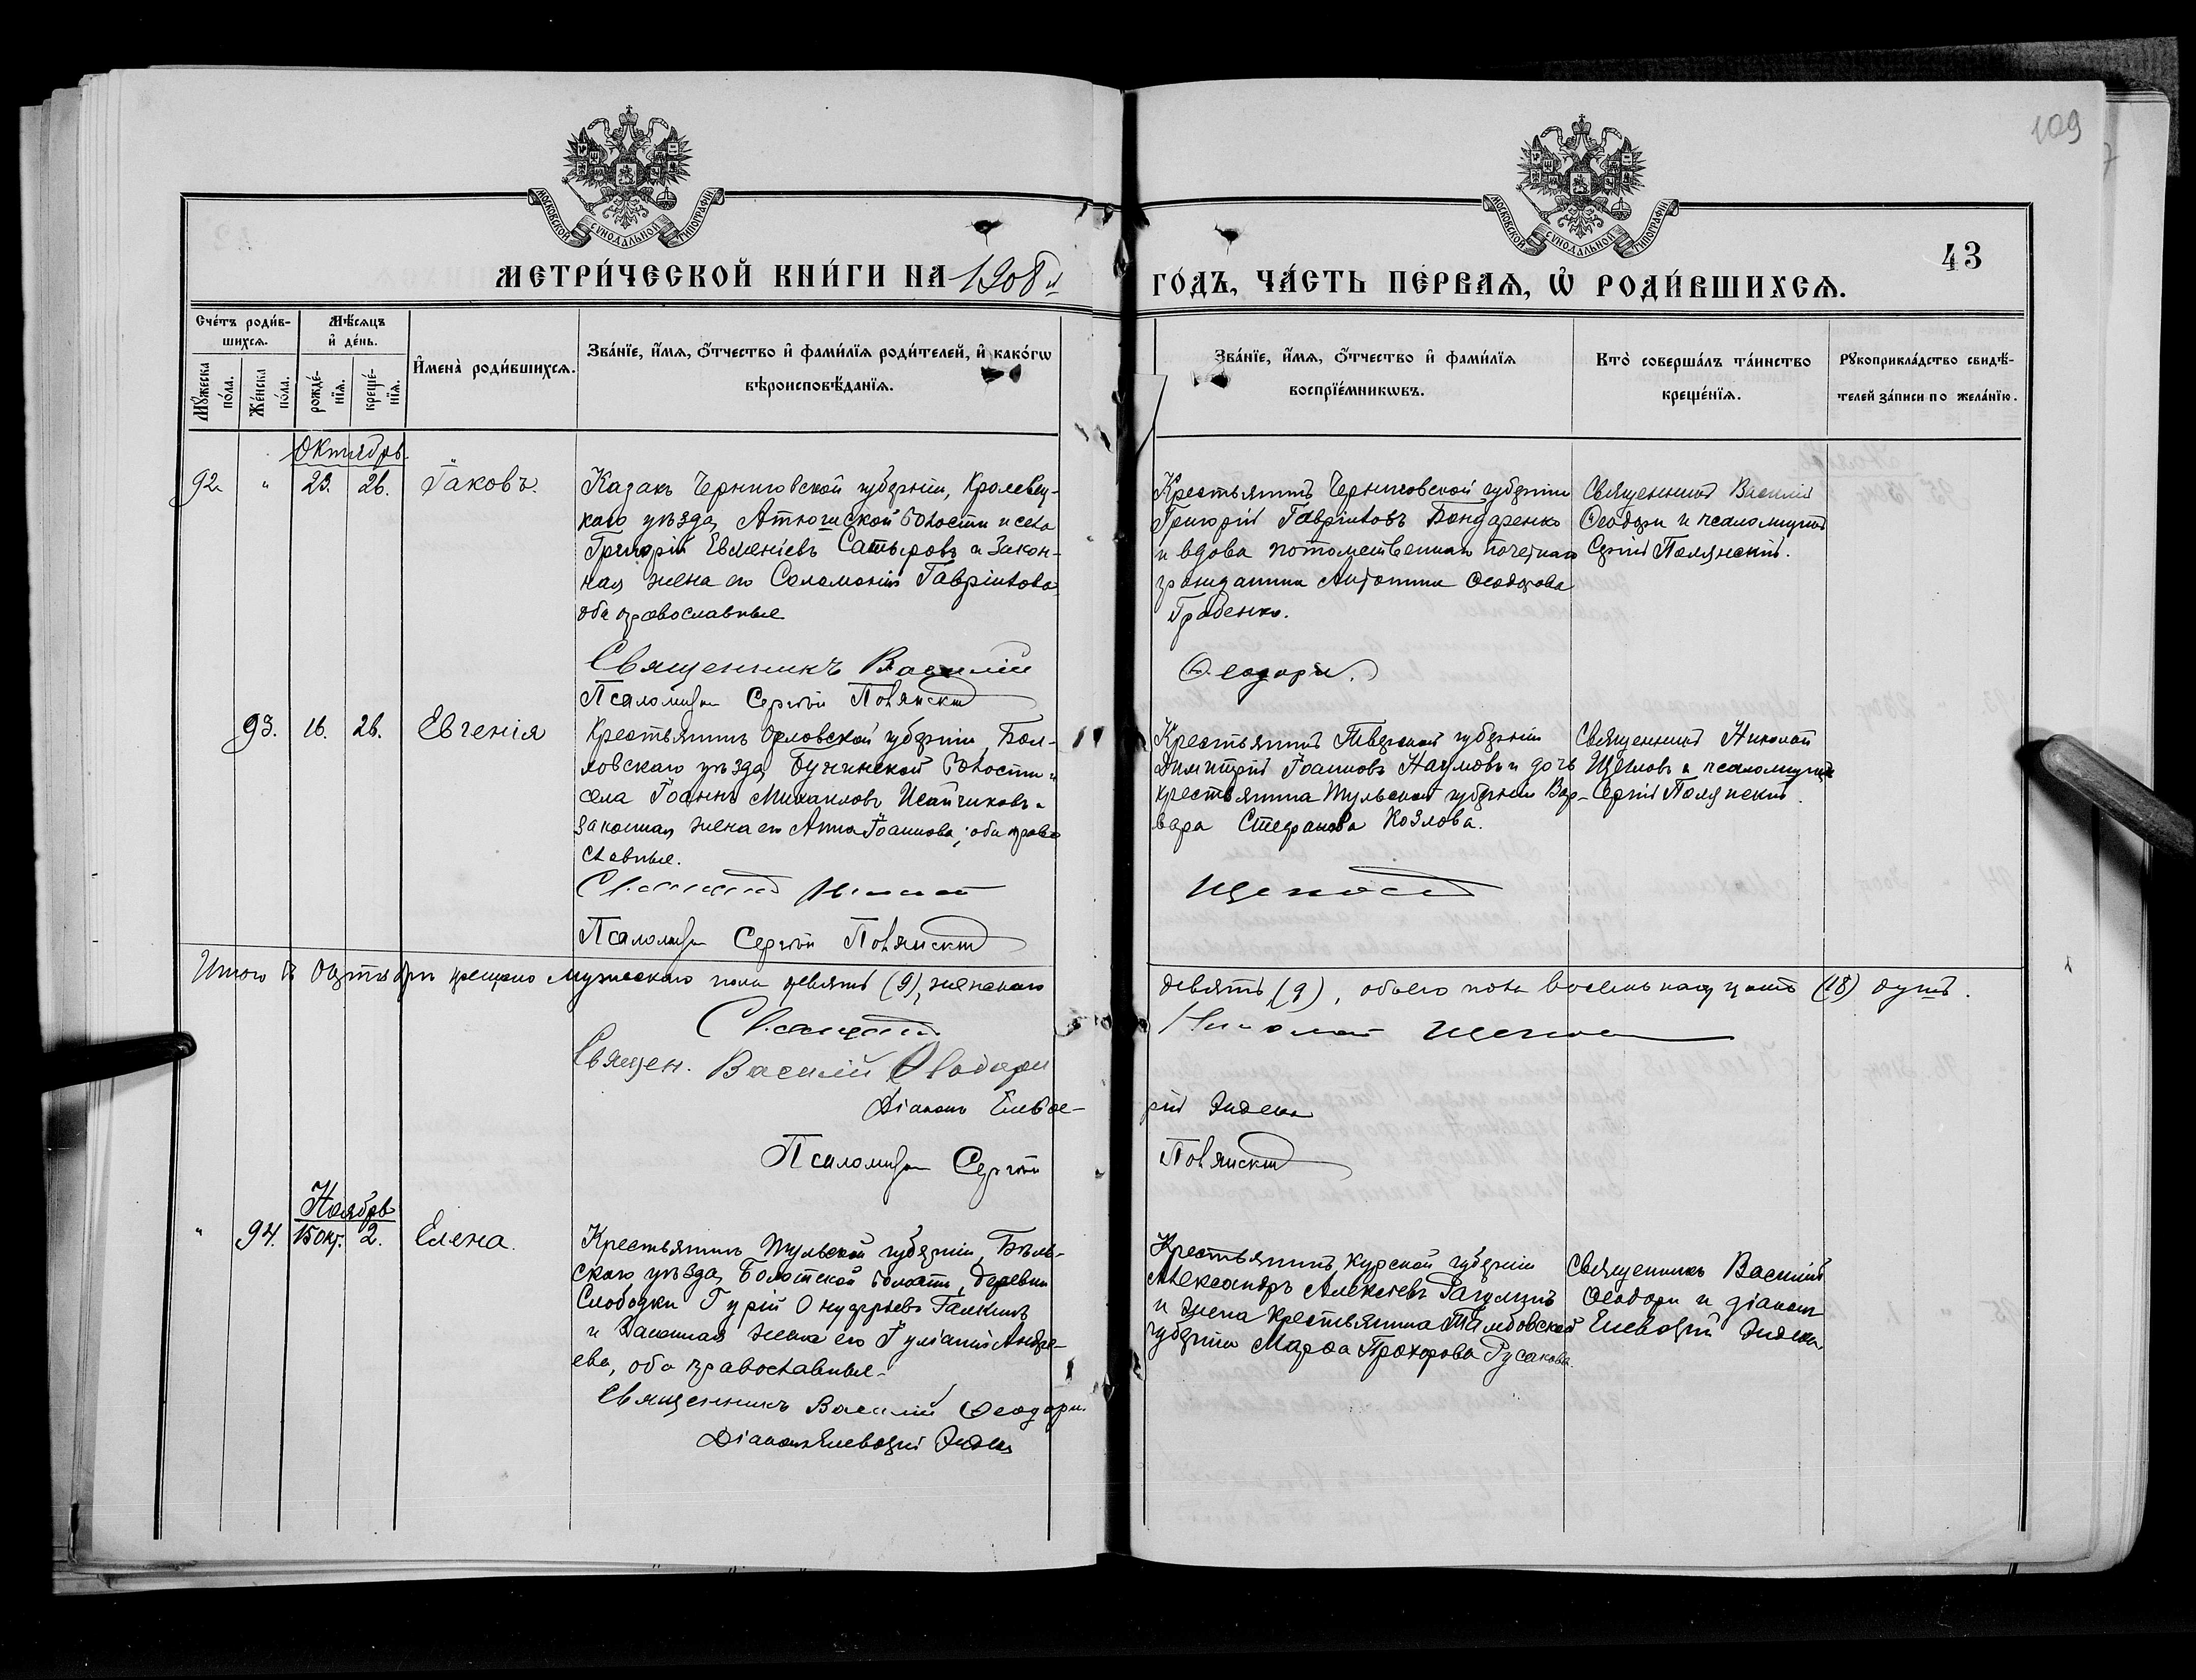 109
МОСКОВСКОЙ СѴНОДАЛЬНОЙ ТИПОГРАФІИ
МОСКОВСКОЙ СѴНОДАЛЬНОЙ ТИПОГРАФІИ
43
МЕТРИ́ЧЕСКОЙ КНИ́ГИ НА 1908 й
ГО́ДЪ, ЧА́СТЬ ПЕ́РВАѦ, Ѽ РОДИ́ВШИХСѦ.
Сче́тъ роди́в-
шихсѧ.
Мꙋ́жеска по́ла.
Же́нска по́ла.
Мѣ́сѧцъ
и҆ де́нь.
рожде́-
нїѧ.
креще́-
нїѧ.
И҆мена̀ роди́вшихсѧ.
Зва́нїе, и҆́мѧ, ѻ҆́тчество и҆ фами́лїѧ роди́телей, и҆ како́гѡ
вѣроисповѣ́данїѧ.
Зва́нїе, и҆́мѧ, ѻ҆́тчество и҆ фами́лїѧ
воспрїе́мникѡвъ.
Кто̀ соверша́лъ та́инство
креще́нїѧ.
Рꙋкоприкла́дство свидѣ́-
телей за́писи по жела́нїю.
Октябрь.
92 " 23. 26. Іаковъ.
Казакъ Черниговской губерніи, Кролевец-
каго уѣзда, Атюшской волости и села
Григорій Евменіевъ Сатыровъ и закон-
ная жена его Соломонія Гавріилова,
оба православные
Священникъ Василій
Псаломщ. Сергій Полянскій
Крестьянинъ Черниговской губерніи
Григорій Гавріиловъ Бондаренко
и вдова потомственнаго почетнаго
гражданина Антонина Ѳеодорова
Грабенко.
Ѳеодори.
Священникъ Василій
Ѳеодори и псаломщикъ
Сергій Полянскій.
93. 16. 26. Евгенія
Крестьянинъ Орловской губерніи, Бол-
ховскаго уѣзда, волости и
села Іоаннъ Михаиловъ Исайчиковъ и
законная жена его Анна Іоаннова, оба право
славные.
Псаломщ. Сергій Полянскій
Крестьянинъ Тверской губерніи
Димитрій Іоанновъ Наумовъ и дочь
крестьянина Тульской губерніи Вар-
вара Стефанова Козлова.
Священникъ Николай
и псаломщикъ
Сергій Полянскій.
Итого въ Октябрѣ крещено мужескаго пола девять (9), женскаго
девять (9), обоего пола восемнадцать (18) душъ.
Священ. Василій Ѳеодори
Николай
Діаконъ Елевѳе-
рій
Псаломщ. Сергій
Полянскій
Ноябрь
" 94. 15 окт. 2. Елена.
Крестьянинъ Тульской губерніи, Бѣлев-
скаго уѣзда, Болотской волости, деревни
Слободки Гурій Онуфріевъ Галкинъ
и законная жена его Іуліанія Андре-
ева, оба православные.
Священникъ Василій Ѳеодори.
Діаконъ Елевѳерій
Крестьянинъ Курской губерніи
Александръ Алексѣевъ
и жена крестьянина Тамбовской
губерніи Марѳа Прохорова Русакова.
Священникъ Василій
Ѳеодори и діаконъ
Елевѳерій